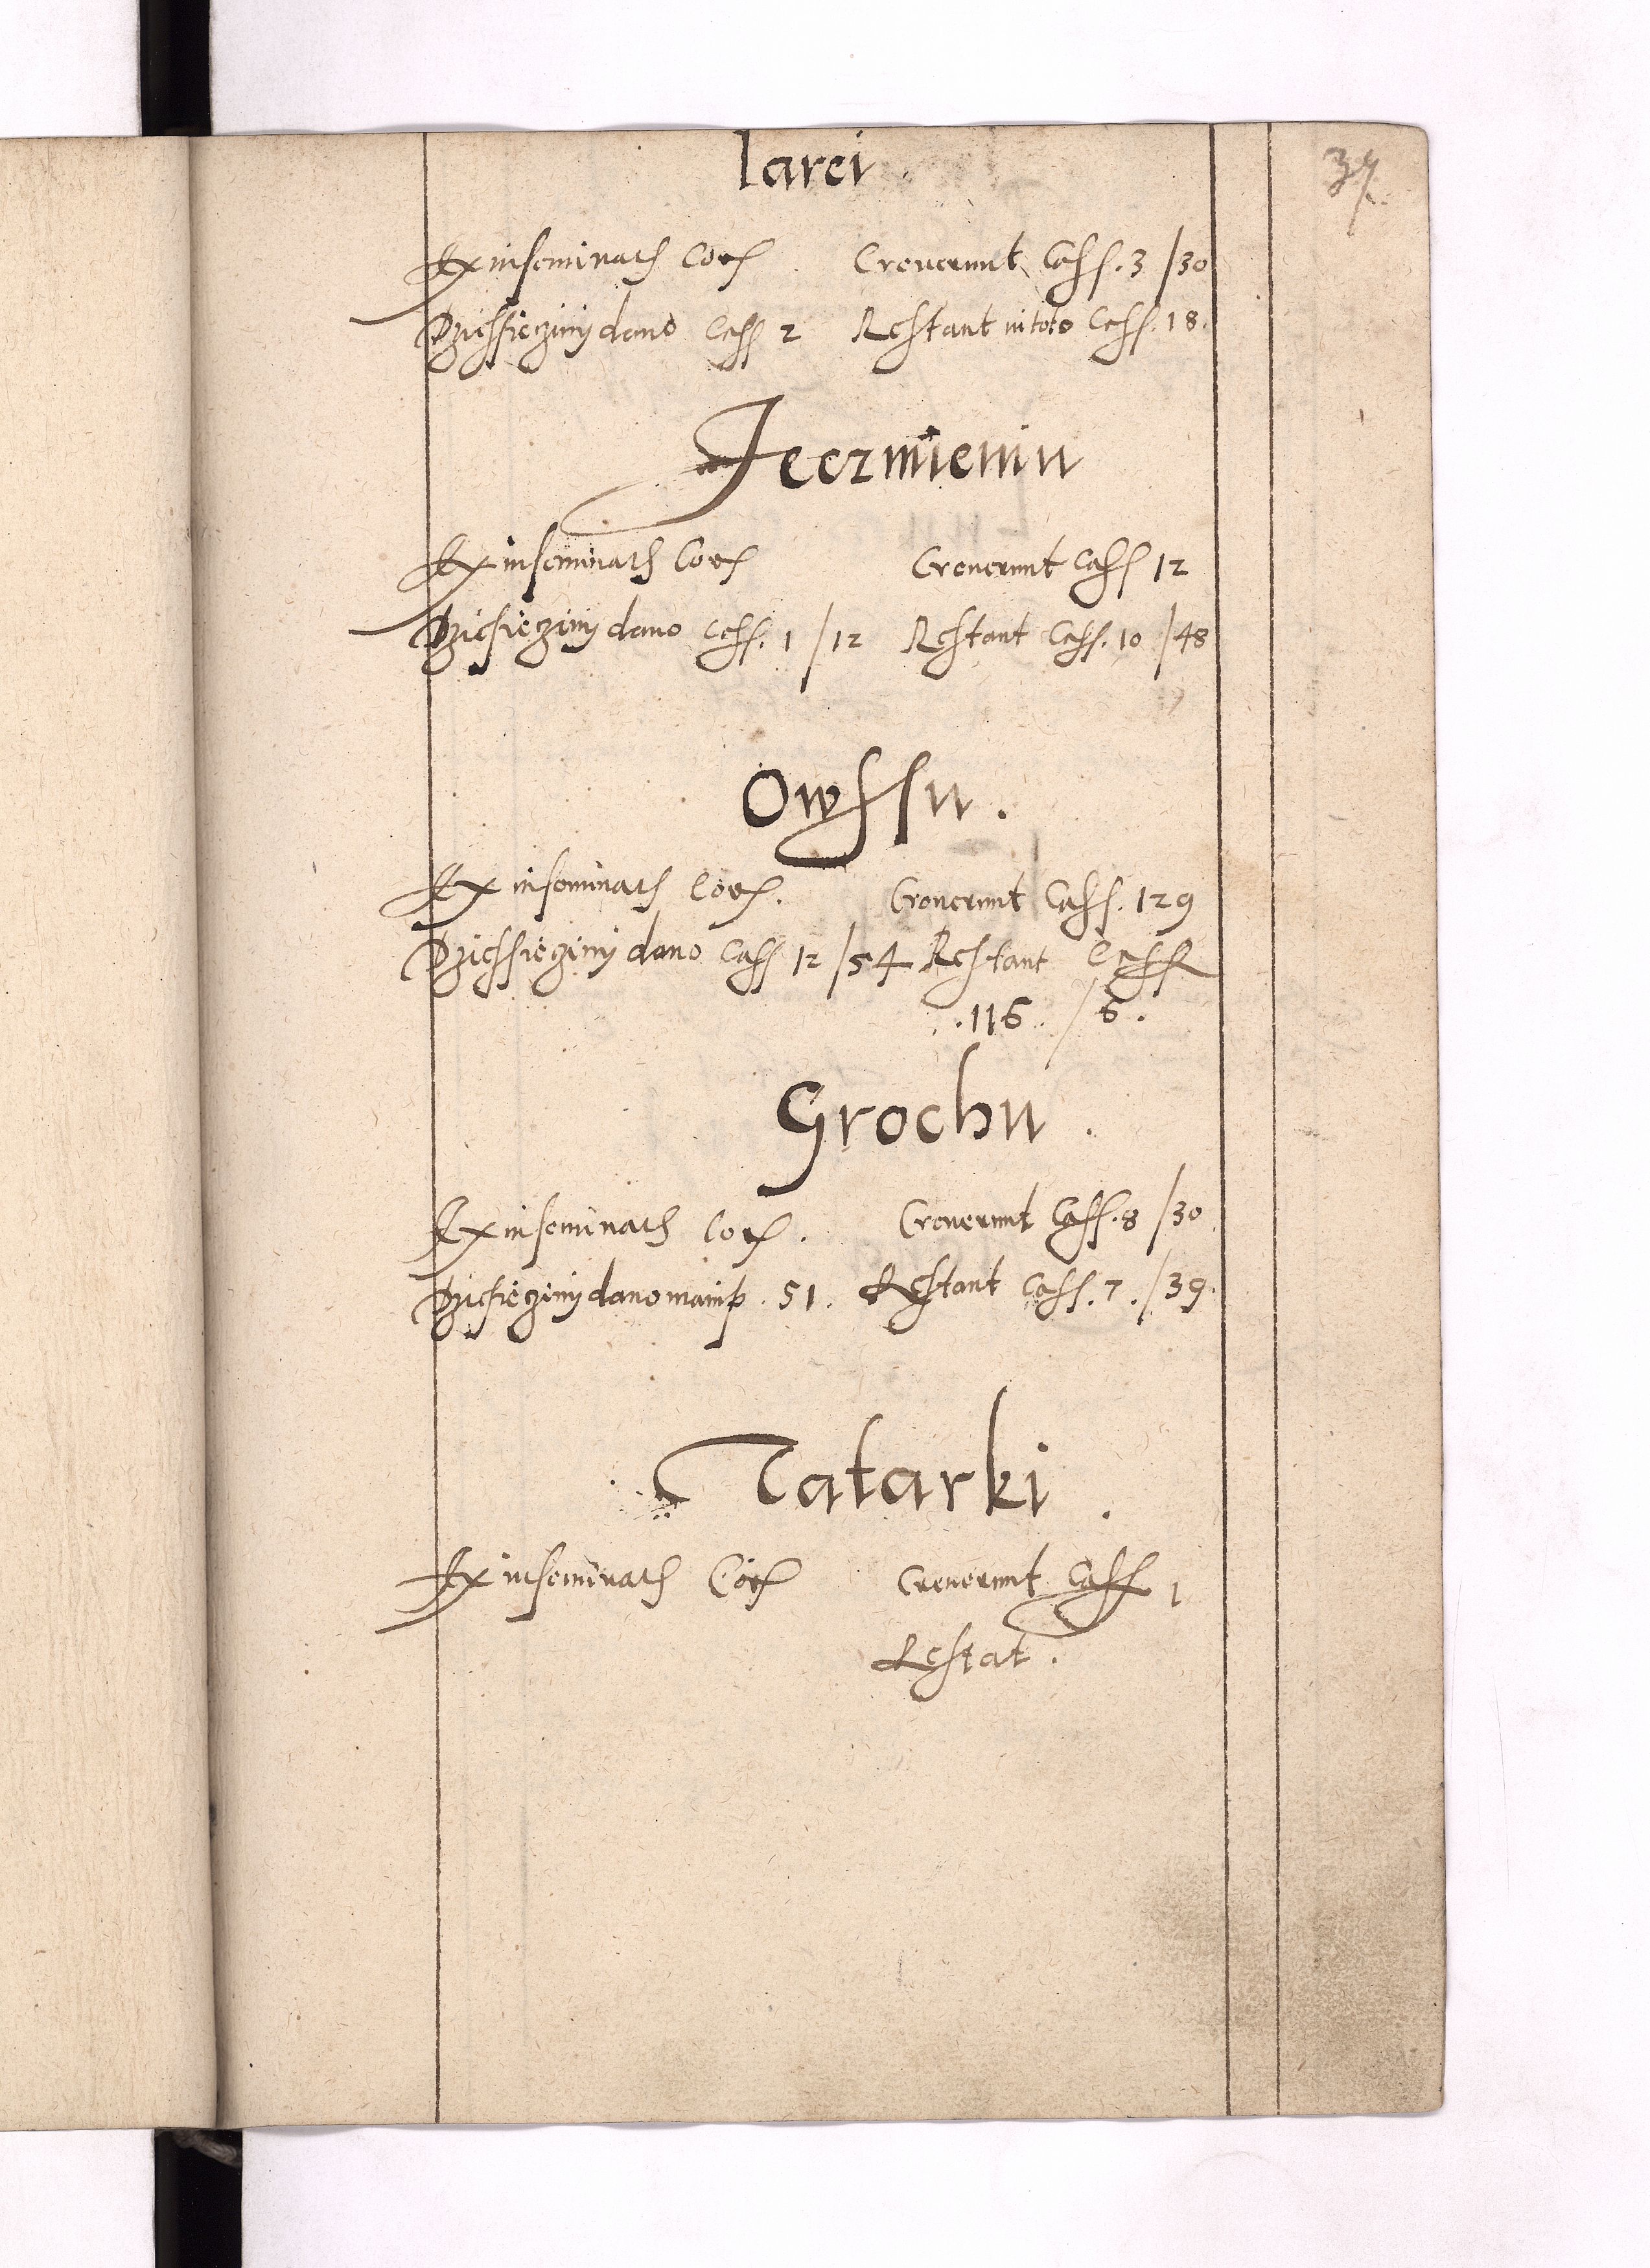 37
Iarei
Ex inseminatis Cor͂ Creuerunt Cass. 3 /30
Dziessięciny dano Cass 2 Restant in toto Cass. 18.
Jeczmieniu
Ex inseminatis Cor͂ Creuerunt Cass 12
Dziesięciny dano Cass. 1 /12 Restant Cass. 10 /48
Owssu.
Ex inseminatis Cor͂. Creuerunt Cass. 129
Dziessięciny dano Cass 12 /54 Restant Cass
.116. /6.
Grochu.
Ex inseminatis Cor͂. Creuerunt Cass. 8 /30
Dziesięciny dano manip. 51. Restant Cass. 7. /39.
Tatarki.
Ex inseminatis Cor͂ Creuerunt Cass 1
Restat.